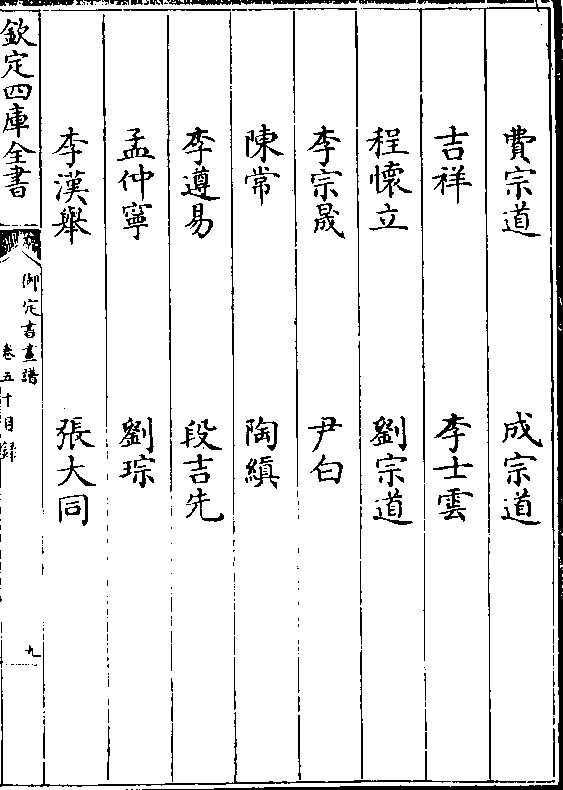 費宗道　成宗道
吉祥　李士雲
程懷立　劉宗道
李宗晟　尹白
陳常　陶縝
李遵易　段吉先
孟仲寧　劉琮
李漢舉　張大同
欽定四庫全書
御定書畫譜
卷五十目錄
九